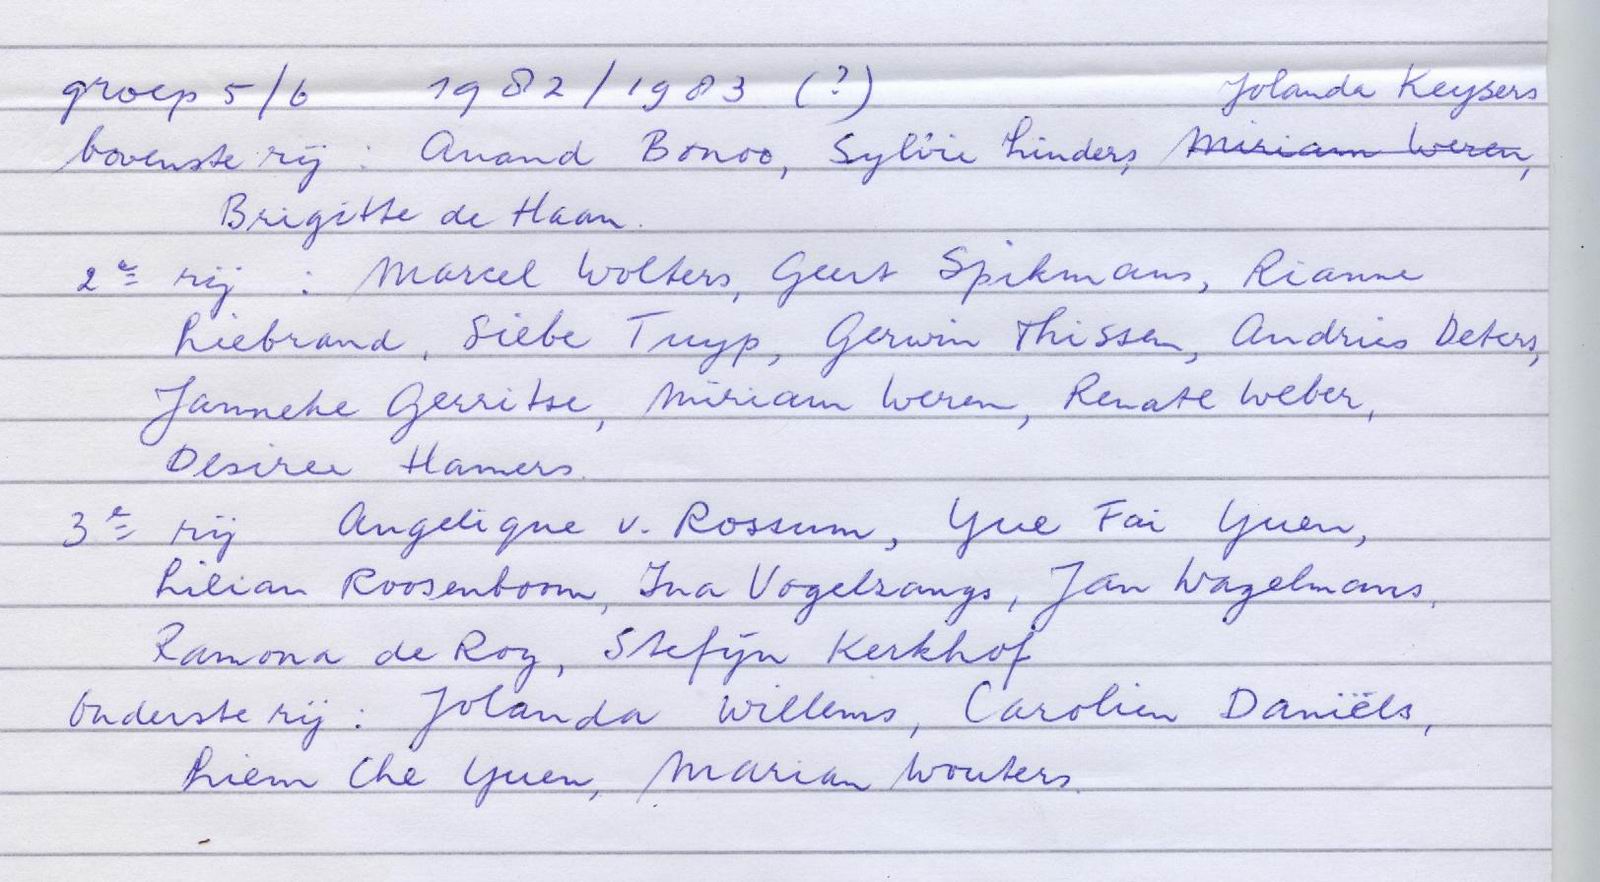 groep 5/6 1982/1983 (?) Jolanda Keysers
bovenste rij : Anand Bonoo, Sylvie Linders, Miriam Weren,
Brigitte de Haan.
2e rij : Marcel Wolters, Geert Spikmans, Rianne
Liebrand, Siebe Tuyp, Gerwin Thissen, Andries Deters,
Janneke Gerritse, Miriam Weren, Renate Weber,
Desiree Hamers.
3e rij Angelique v. Rossum, Yue Fai Yuen,
Lilian Roosenboom, Ina Vogelzangs, Jan Wagelmans,
Ramona de Roy, Stefijn Kerkhof
onderste rij : Jolanda Willems, Carolien Daniëls,
Liem Che Yuen, Marian Wouters.